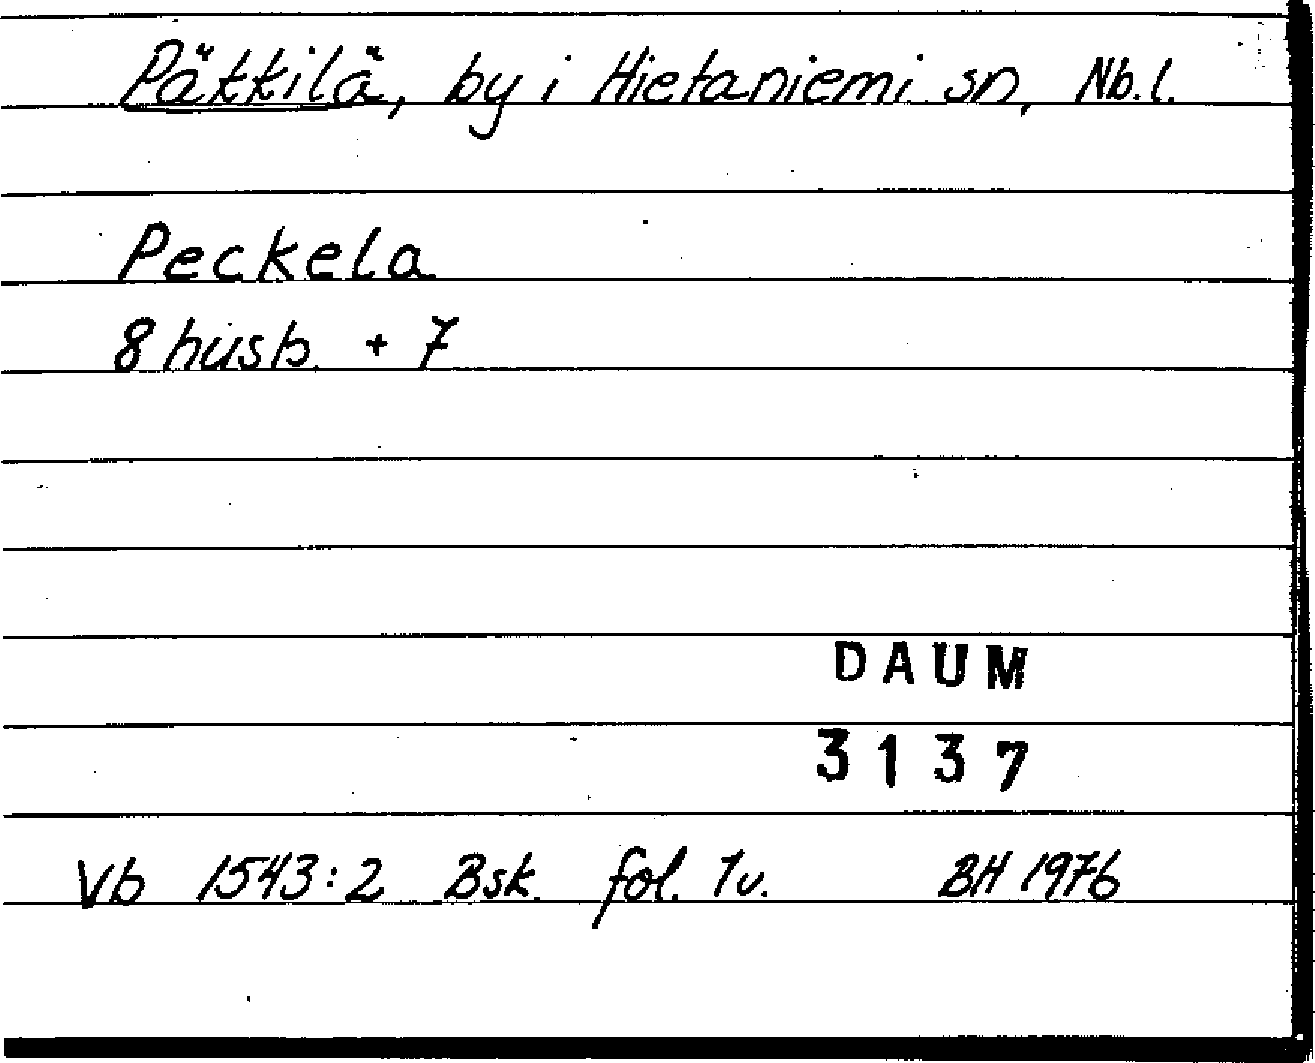 Päkkilä, by i Hietaniemi sn, Nb.l.
Peckela
8 husb. + 7
DAUM
3137
Vb 1543:2 Bsk. fol. 1v. BH 1976